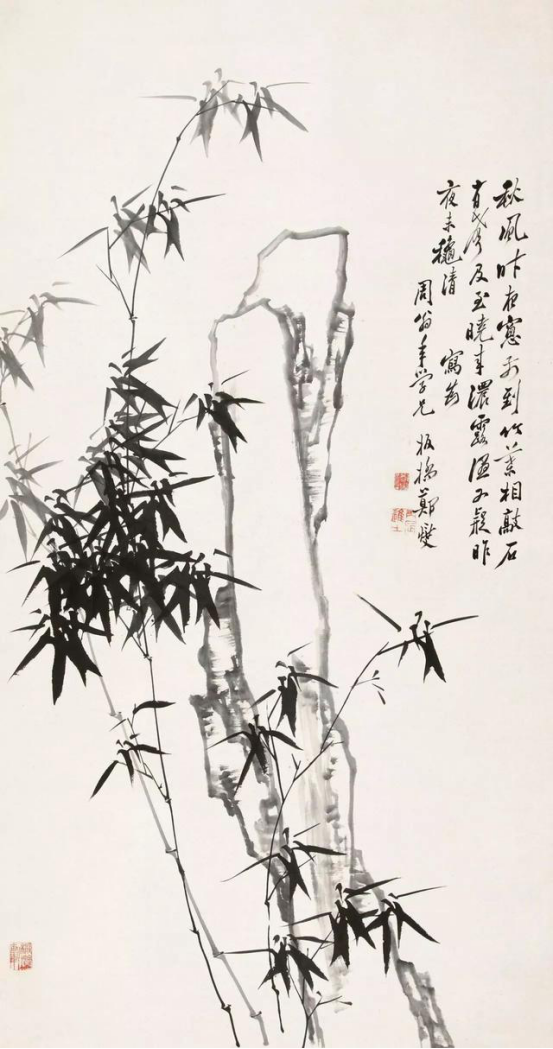 秋風昨夜窗前到竹葉相敲石
有聲及至曉來濃露濕又疑昨
夜未穐清 寫為
周翁年學兄 板橋鄭燮